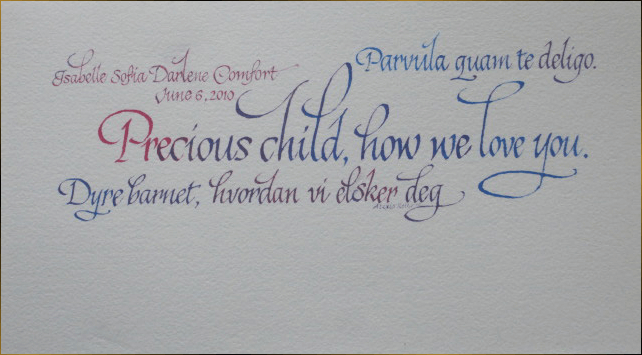 Isabelle Sofia Darlene Comfort
June 6, 2010
Parvula quam te deligo.
Precious child, how we love you.
Dyre barnet, hvordan vi elsker deg